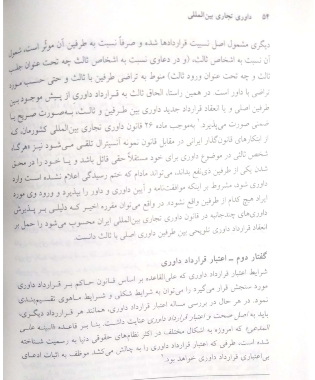 ۵۴ داوری تجاری بین‌المللی
دیگری مشمول اصل نسبیت قراردادها شده و صرفاً نسبت به طرفین آن موثر است، شمول
آن نسبت به اشخاص ثالث، (و در دعاوی نسبت به اشخاص ثالث چه تحت عنوان جلب
ثالث و چه تحت عنوان ورود ثالث) منوط به تراضی طرفین با ثالث و حتی حسب مورد
تراضی با داور است. در همین راستا، الحاق ثالث به قرارداد داوری از پیش موجود بین
طرفین اصلی و یا انعقاد قرارداد جدید داوری بین طرفین و ثالث، به‌صورت صریح یا
ضمنی صورت می‌پذیرد. به‌موجب ماده ۲۶ قانون داوری تجاری بین‌المللی کشورمان، که
از ابتکارهای قانون‌گذار ایرانی در مقابل قانون نمونه آنسیترال تلقی می‌شود نیز «هرگاه
شخص ثالثی در موضوع داوری برای خود مستقلاً حقی قائل باشد و یا خود را در محق
شدن یکی از طرفین ذی‌نفع بداند، می‌تواند مادام که ختم رسیدگی اعلام نشده است وارد
داوری شود، مشروط بر اینکه موافقت‌نامه و آیین داوری و داور را بپذیرد و ورود وی مورد
ایراد هیچ کدام از طرفین واقع نشود». در واقع می‌توان مقرره اخیر که دلیلی بر پذیرش
داوری‌های چندجانبه در قانون داوری تجاری بین‌المللی ایران محسوب می‌شود را حمل بر
انعقاد قرارداد داوری تلویحی بین طرفین داوری اصلی با ثالث دانست.
گفتار دوم ـ اعتبار قرارداد داوری
شرایط اعتبار قرارداد داوری که علی‌القاعده بر اساس قانون حاکم بر قرارداد داوری
مورد سنجش قرار می‌گیرد را می‌توان به شرایط شکلی و شرایط ماهوی تقسیم‌بندی
نمود. در هر حال در بررسی مساله اعتبار قرارداد داوری، همانند هر قرارداد دیگری،
باید به اصل صحت و اعتبار قرارداد داوری عنایت داشت. بنا بر قاعده «البینه علی
المدعی» که امروزه به اشکال مختلف، در اکثر نظام‌های حقوقی دنیا به رسمیت شناخته
شده است، طرفی که اعتبار قرارداد داوری را به چالش می‌کشد موظف به اثبات ادعای
بی‌اعتباری قرارداد داوری خواهد بود.